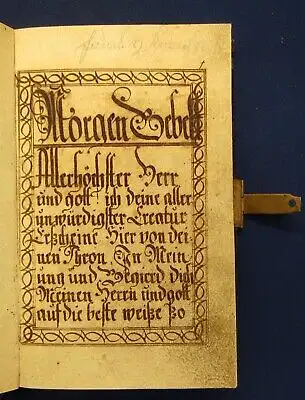 Morgen Gebett
Allerhöchster Herr
und gott ich deine aller
unwürdigster Creatur
Erscheine hier von dei-
nen Thron. In Mein
ung und Begierd dich
Meinen Herrn und gott
auf die beste weiße so